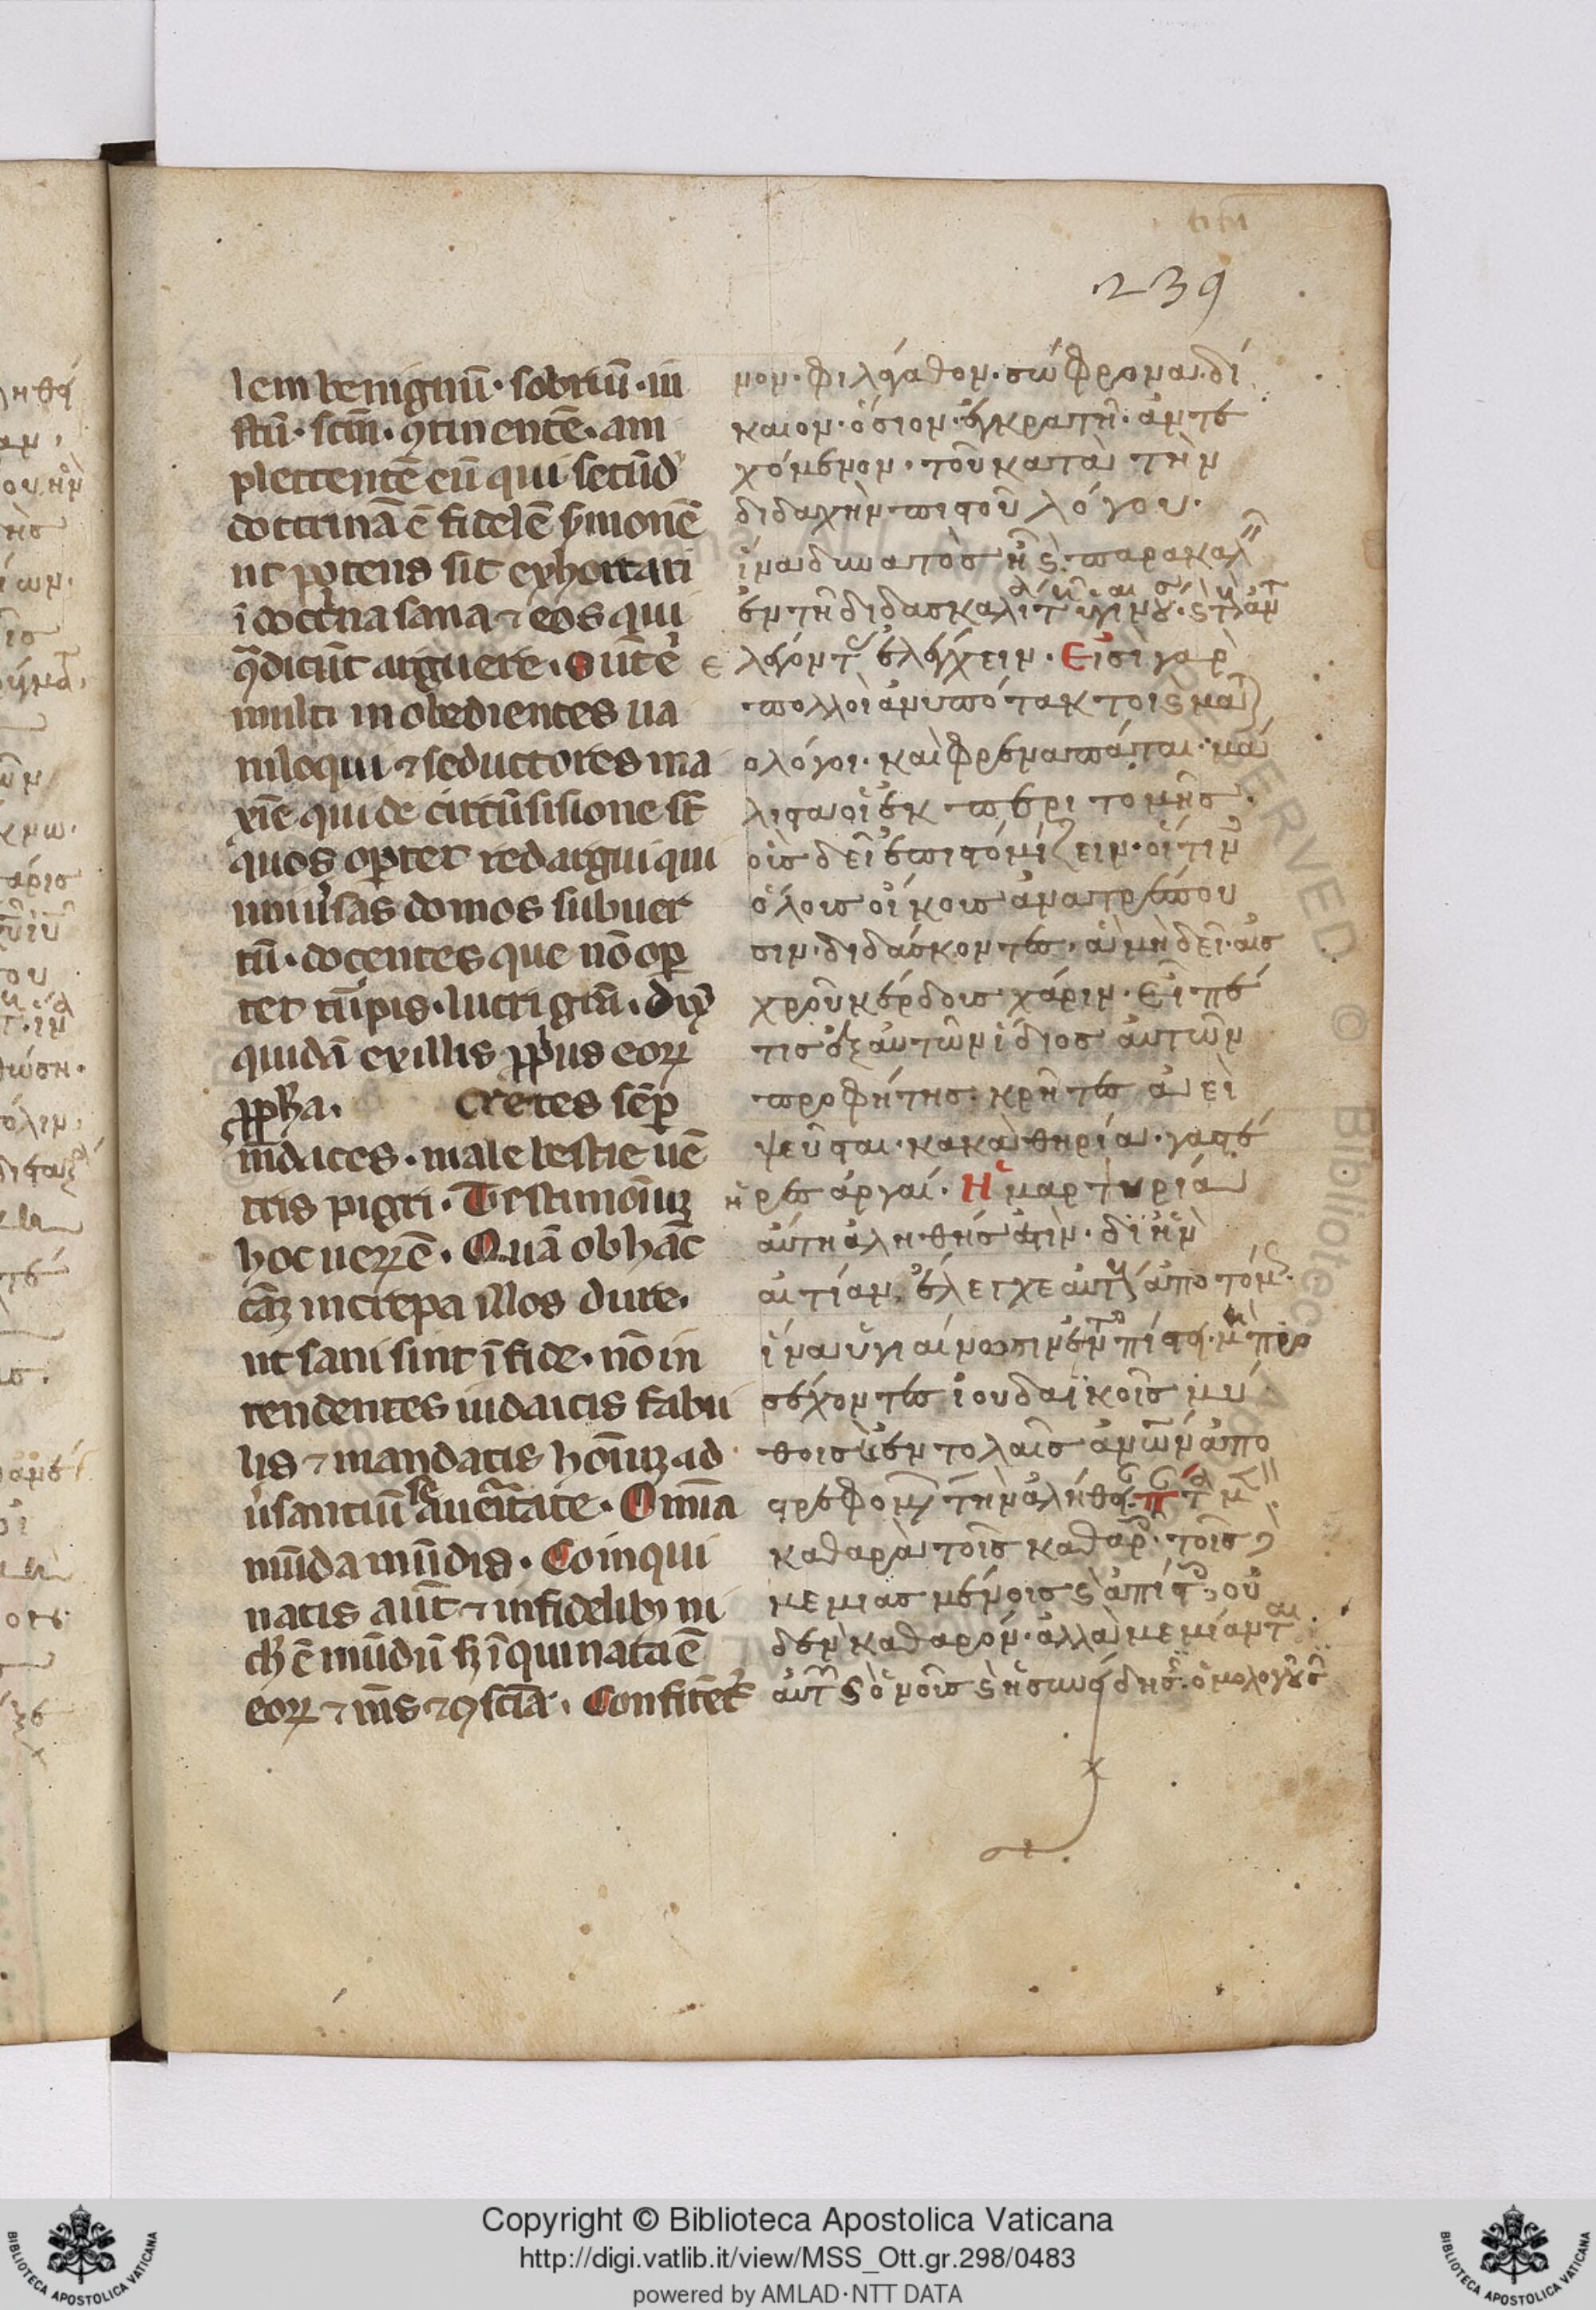 239
lem benignū · sobriū · iu
stū · scm̄ · ꝯtinentē · am
plectentē eū qui secūd'
doctrinā ē fidelē s̄monē
ut potens sit exhortari
ī doctͥna sana ⁊ eos qui
ꝯ̄dicūt arguere · Sūt ē
multi inobedientes ua
niloqui ⁊ seductores ma
xīe qui de circūsisione sт̄
quos oꝑtet redargui qui
uniūsas domos subuer
tū · docentes que nō oꝑ
tet turpis · lucri grā · dix̄
quidā ex illis ꝓpͥus eoꝝ
ꝓph̄a · Cretes sēꝑ
m̄daces · male bestie uē
tris pigri · Testimoīuꝫ
hoc ueꝝ ē · Quā ob hāc
cāꝫ increpa illos dure ·
ut sani sint ī fide · nō in
tendentes iudaicis fabu
lis ⁊ mandatis hoīuꝫ ad
ūsantiū se a ueritate · Omīa
mūda mūdis · Coinqui
natis aūt ⁊ infidelibꝫ ni
ch̄ ē mūdū sꝫ īquinata ē
eoꝝ ⁊ m̄s ⁊ ꝯscīa · Confitēt
νον · φιλάγαθον · σώφρονα · δί
καιον · ὅσιον · ἐγκρατῆ · ἀντε
χόμενον · τοῦ κατὰ τὴν
διδαχὴν πιστοῦ λόγου ·
ἵνα δυνατὸς ῇ ϗ παρακαλ
ἐν τῇ διδασκαλί τ ὑγιαιν ϗ τ ἀντ
λέγοντ ἐλέγχειν · Εἰσὶ γὰρ
πολλοὶ ἀνυπότακτοι ϗ ματ
ολόγοι · καὶ φρεναπάται · μά
λιστα οἱ ἐκ περιτομῆς ·
οὓς δεῖ ἐπιστομίζειν · οἵτιν
ὅλους οἴκους ἀνατρέπου
σιν · διδάσκοντες · ἃ μὴ δεῖ · αἰσ
χροῦ κέρδους χάριν · Εἶπέ
τις ἐξ αὐτῶν ἴδιος αὐτῶν
προφήτης · κρῆτες ἀεὶ
ψεῦσται · κακὰ θηρία · γαστέ
ρες ἀργαί · Ἡ μαρτυρία
αὕτη ἀληθής ἐστιν · δι ἣν
αἰτίαν, ἔλεγχε αὐτ ἀποτόμ
ἵνα ὑγιαίνωσιν ἐν τ πίστ · μὴ πρ
σέχοντες ἰουδαϊκοῖς μύ
θοις ϗ ἐντολαῖς ἀνων ἀπο
στρεφομ τὴν ἀλήθ · π τ μ
καθαρὰ τοῖς καθαρ · τοῖς δ
μεμιασμένοις ϗ ἀπίστ, οὐ
δὲν καθαρόν · ἀλλὰ μεμίαντ
αὐτ ϗ ὁ νοῦς ϗ ἡ συνείδησ · ὁμολογοῦσ
Copyright © Biblioteca Apostolica Vaticana
http://digi.vatlib.it/view/MSS_Ott.gr.298/0483
powered by AMLAD·NTT DATA